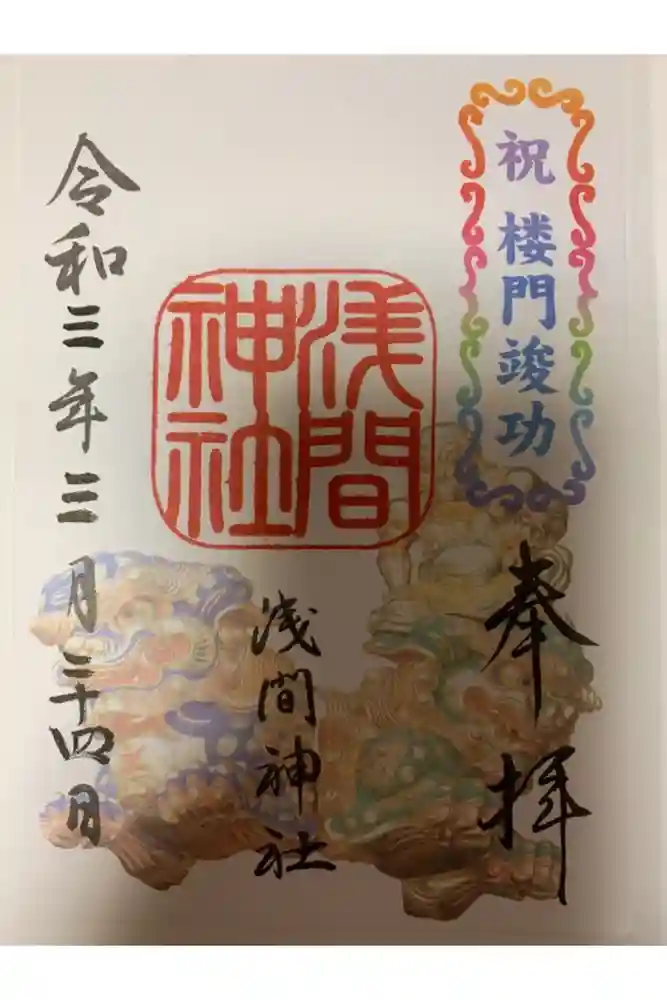 祝 楼門竣功
奉拝
浅間
神社
浅間神社
令和三年三月二十四日